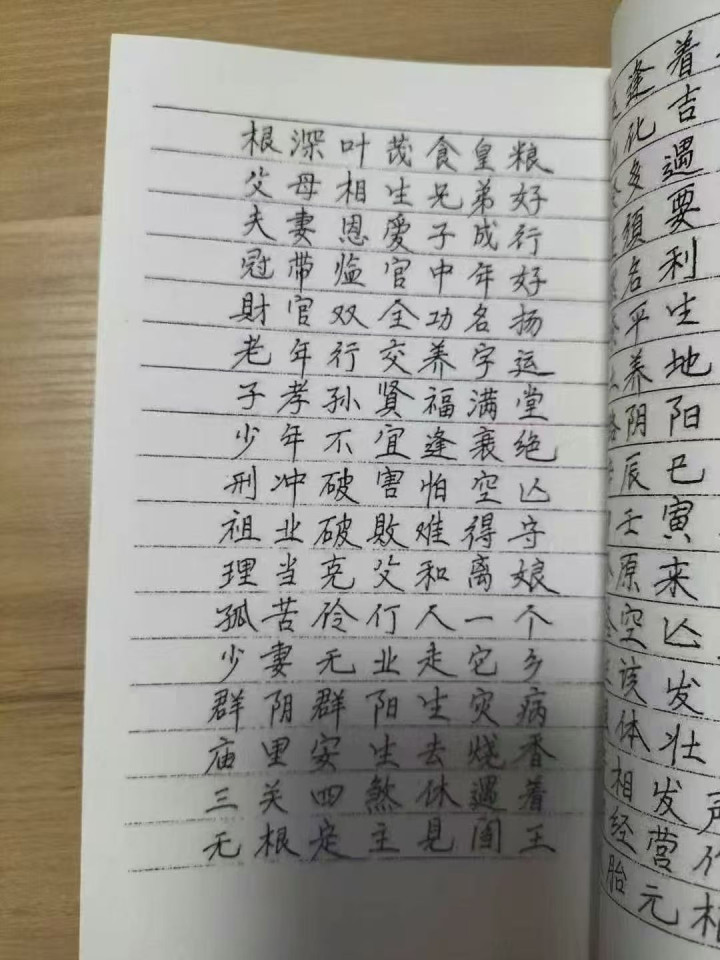 根深叶茂食皇粮
父母相生兄弟好
夫妻恩爱子成行
冠带临官中年好
財官双全功名扬
老年行交养字运
子孝孙贤福满堂
少年不宜逢衰绝
刑冲破害怕空亾
祖业破敗难得守
理当克父和离娘
孤苦伶仃人一个
少妻无业走它乡
群阴群阳生灾病
庙里安生去烧香
三关四煞休遇着
无根定主见阎王
逢着
化吉
多遇
須要
名利
平生
养地
阴阳
辰巳
壬寅
原来
空亾
该发
体壮
相发声
经营
胎元相